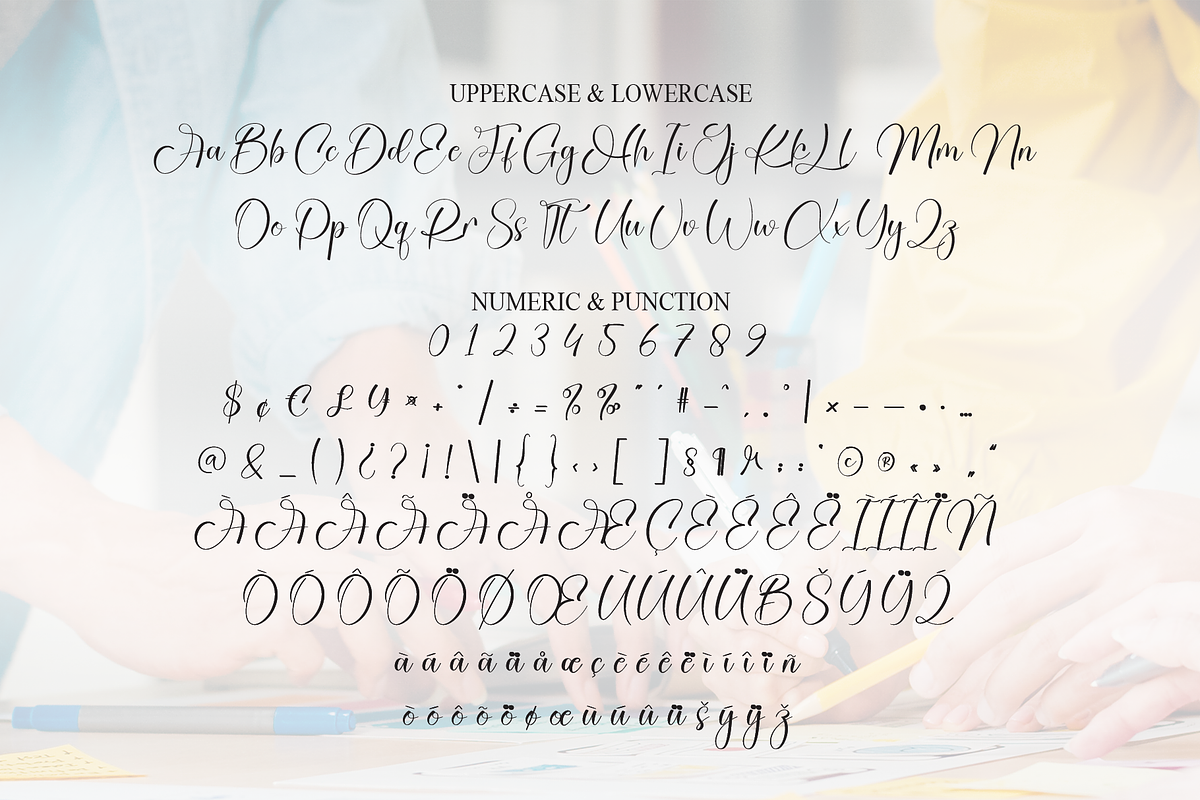 UPPERCASE & LOWERCASE
Aa Bb Cc Dd Ee Ff Gg Hh Ii Jj Kk Ll Mm Nn
Oo Pp Qq Rr Ss Tt Uu Vv Ww Xx Yy Zz
NUMERIC & PUNCTION
0 1 2 3 4 5 6 7 8 9
$ ¢ € £ ¥ ¤ + ˙ / ÷ = % ‰ " ' # – ˆ , . ° | × – — • · …
@ & _ ( ) ¿ ? ¡ ! \ | { } ‹ › [ ] § ¶ µ ; : ' © ® « » „ “
À Á Â Ã Ä Å Æ Ç È É Ê Ë Ì Í Î Ï Ñ
Ò Ó Ô Õ Ö Ø Œ Ù Ú Û Ü B Š Ý Ÿ Ž
à á â ã ä å æ ç è é ê ë ì í î ï ñ
ò ó ô õ ö ø œ ù ú û ü š ý ÿ ž